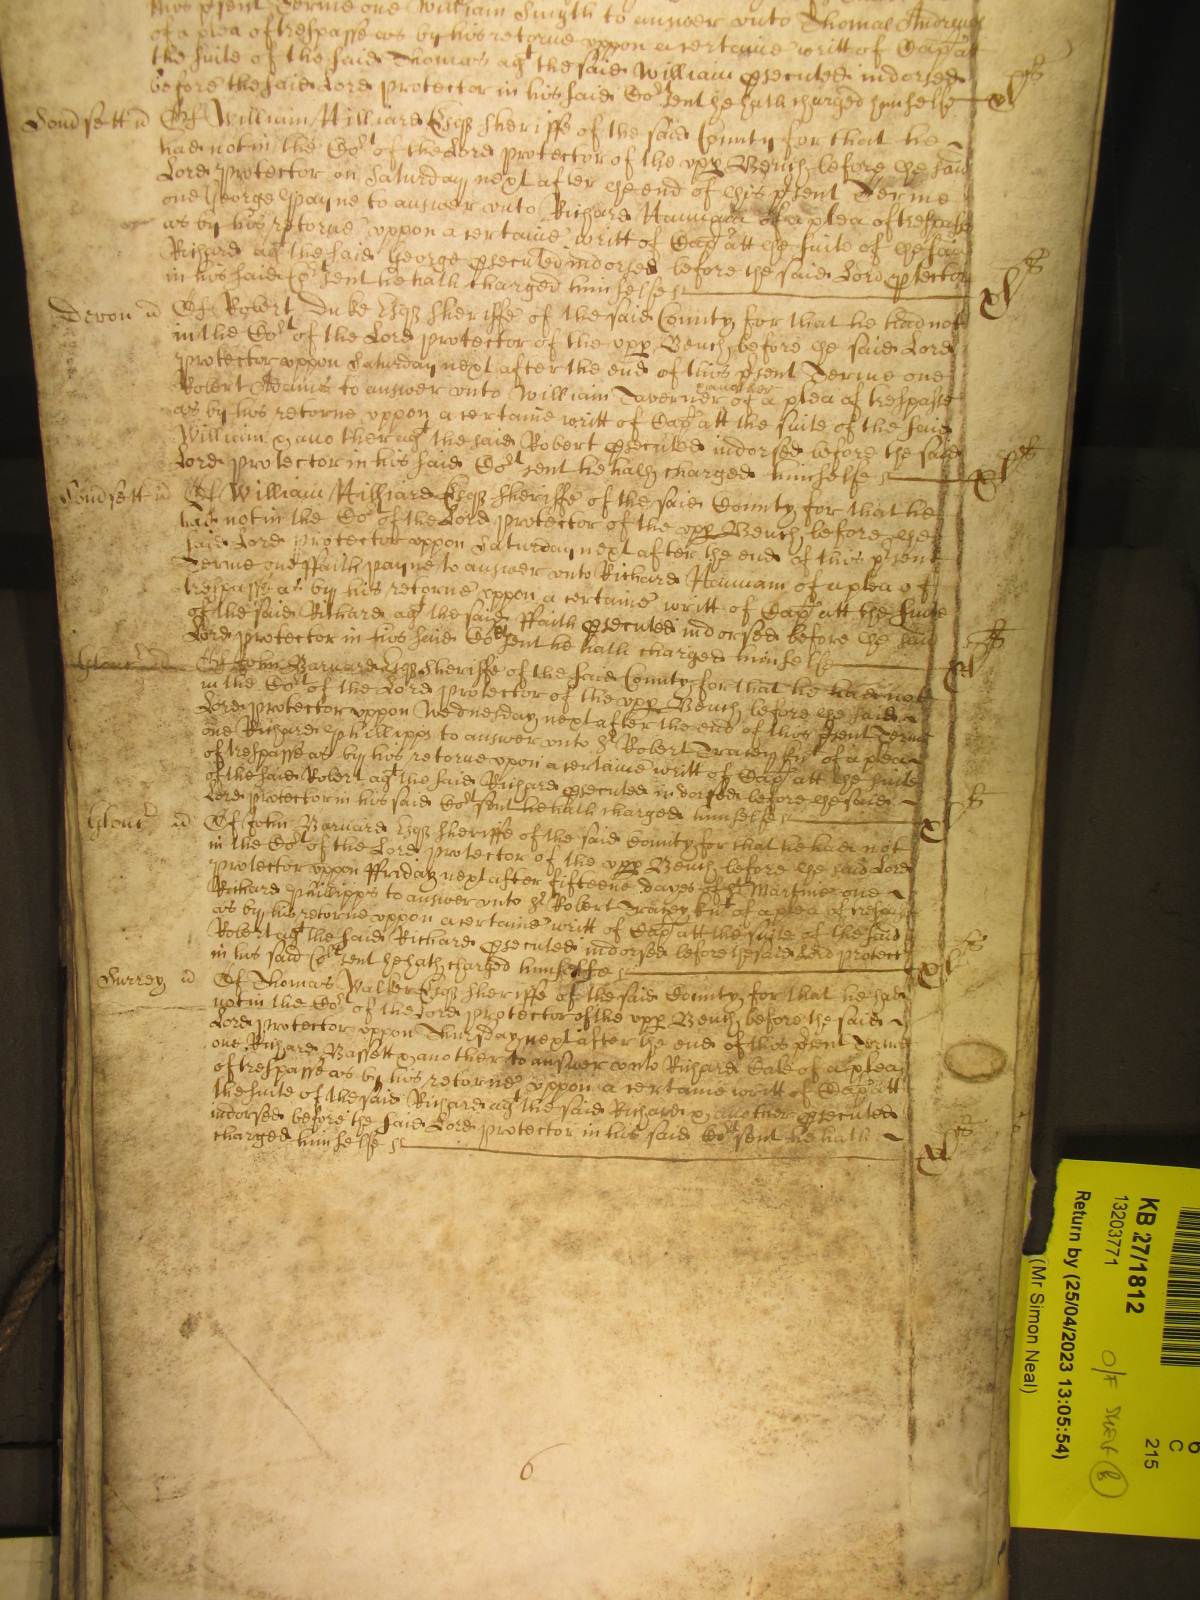 this p'sent Terme one William Smyth to answer unto Thomas Andrewes
of a plea of trespasse as by his retorne uppon a certaine writt of Cap' att
the suite of the said Thomas ag't the said William p'secuted indorsed
before the said Lord Protector in his said Co't sent he hath charged himselfe xl s
Somersett ss Of William Hilliard Esq' Sheriffe of the said County for that he
had not in the Co't of the Lord Protector of the upp' Bench before the said
Lord Protector on Saturday next after the end of this p'sent Terme
one George Payne to answer unto Richard Hannam of a plea of trespasse
as by his retorne uppon a certaine writt of Cap' att the suite of the said
Richard ag't the said George p'secuted indorsed before the said Lord p'tector
in his said Co't sent he hath charged himselfe xl s
Devon ss Of Robert Duke Esq' Sheriffe of the said County for that he had not
in the Co't of the Lord Protector of the upp' Bench before the said Lord
Protector uppon Saturday next after the end of this p'sent Terme one
Robert Adams to answer unto William Taverner & another of a plea of trespasse
as by his retorne uppon a certaine writt of Cap' att the suite of the said
William & another ag't the said Robert p'secuted indorsed before the said
Lord Protector in his said Co't sent he hath charged himselfe xl s
Somersett ss Of William Hilliard Esq' Sheriffe of the said County for that he
had not in the Co't of the Lord Protector of the upp' Bench before the
said Lord Protector uppon Saturday next after the end of this p'sent
Terme one ffaith Payne to answer unto Richard Hannam of a plea of
trespasse as by his retorne uppon a certaine writt of Cap' att the suite
of the said Richard ag't the said ffaith p'secuted indorsed before the said
Lord Protector in his said Co't sent he hath charged himselfe xl s
Glouc' ss Of John Barnard Esq' Sheriffe of the said County for that he had not
in the Co't of the Lord Protector of the upp' Bench before the said
Lord Protector uppon Wednesday next after the end of this p'sent Terme
one Richard Phillipps to answer unto S'r Robert Tracey kn't of a plea
of trespasse as by his retorne upon a certaine writt of Cap' att the suite
of the said Robert ag't the said Richard p'secuted indorsed before the said
Lord Protector in his said Co't sent he hath charged himselfe x s
Glouc' ss Of John Barnard Esq' Sheriffe of the said County for that he had not
in the Co't of the Lord Protector of the upp' Bench before the said Lord
Protector uppon ffriday next after fifteene dayes of St Martine one
Richard Phillipps to answer unto S'r Robert Tracey kn't of a plea of trespasse
as by his retorne uppon a certaine writt of Cap' att the suite of the said
Robert ag't the said Richard p'secuted indorsed before the said Lord Protect'
in his said Co't sent he hath charged himselfe xl s
Surrey ss Of Thomas Walker Esq' Sheriffe of the said County for that he had
not in the Co't of the Lord Protector of the upp' Bench before the said
Lord Protector uppon Thursday next after the end of this p'sent Terme
one Richard Bassett & another to answer unto Richard Eale of a plea
of trespasse as by his retorne uppon a certaine writt of Cap' att
the suite of the said Richard ag't the said Richard & another p'secuted
indorsed before the said Lord Protector in his said Co't sent he hath
charged himselfe xl s
6
KB 27/1812
13203771
Return by (25/04/2023 13:05:54)
(Mr Simon Neal)
O/F
6
C
215